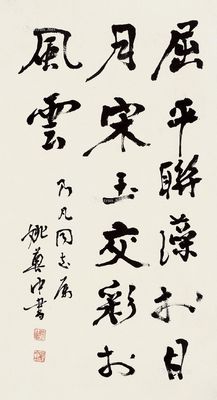 屈平聯藻於日
月宋玉交彩於
風雲
凡同志属
姚奠中書